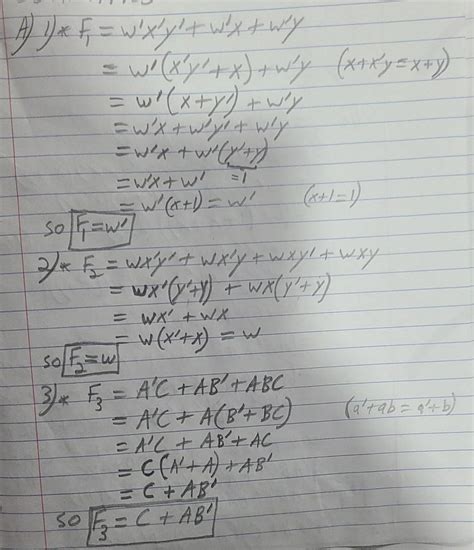 A) 1)* F₁ = w'x'y' + w'x + w'y
= w'(x'y' + x) + w'y (x+x'y = x+y)
= w'(x + y') + w'y
= w'x + w'y' + w'y
= w'x + w'(y'+y)
= w'x + w' =1
= w'(x+1) = w' (x+1=1)
so F₁ = w'
2)* F₂ = wx'y' + wx'y + wxy' + wxy
= wx'(y'+y) + wx(y'+y)
= wx' + wx
= w(x'+x) = w
so F₂ = w
3)* F₃ = A'C + AB' + ABC
= A'C + A(B' + BC) (a'+ab = a'+b)
= A'C + AB' + AC
= C(A'+A) + AB'
= C + AB'
so F₃ = C + AB'